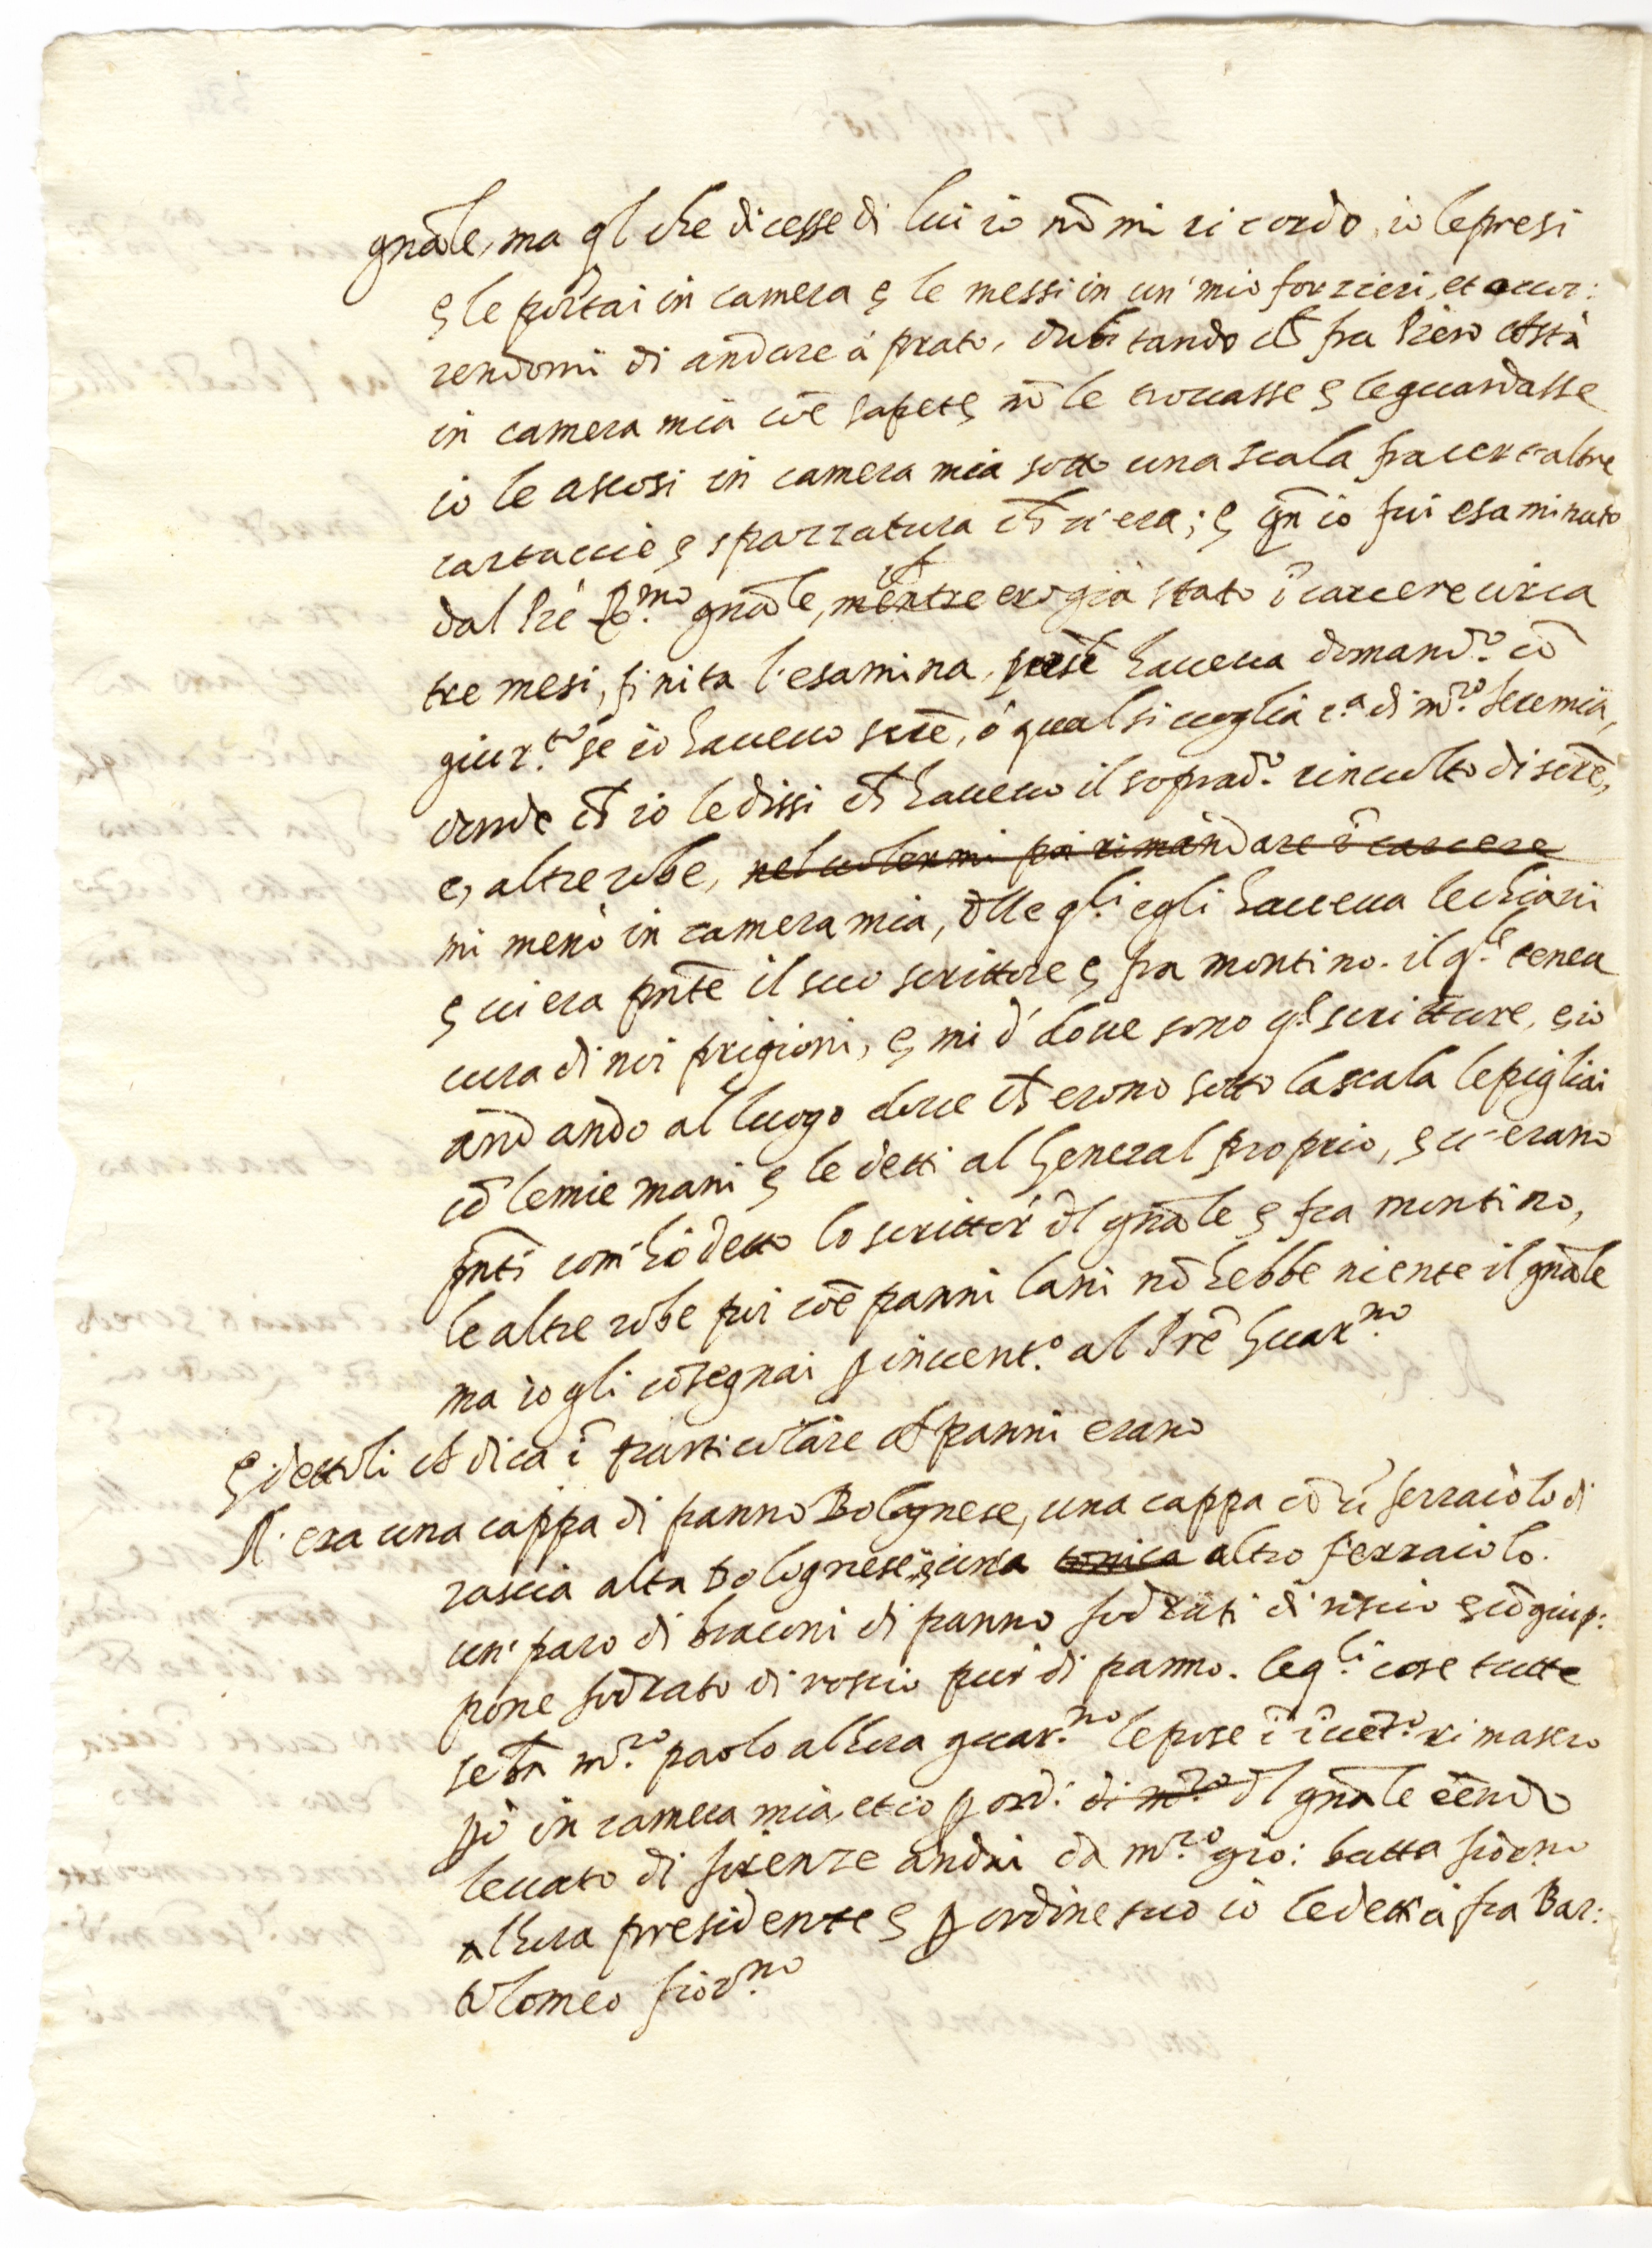 gnãle, ma ql che dicesse di lui io nõ mi ricordo, io le presi
e le portai in camera e le messi in un' mio forzieri, et occor:
rendomi di andare à prato, dubitando ch̃ fra Piero costà
in camera mia cõe sapete nõ le trovasse e le guardasse
io le ascosi in camera mia sotto una scala fra cert'altre
cartaccie e spazzatura ch̃ vi era; e qñ io fui esaminato
dal Prẽ R.mo gnãle, mentre ch̃ ero già stato ĩ carcere circa
tre mesi, finita l'esamina, haveva domand.o cõ
giur.to se io havevo scrẽ, ò qual si voglia r.a di m.ro
donde ch̃ io le dissi ch̃ havevo il soprad.o rinvolto di scrẽ,
e altre robe, nel volermi poi rimandare ĩ carcere
mi menò in camera mia, dlle q.li egli haveva le chiavi
e vi era pñte il suo scrittore e fra montino. il q.le tenea
cura di noi prigioni, e mi d' dove sono q.l scritture, e io
andando al luogo dove ch̃ erono sotto la scala le pigliai
cõ le mie mani e le detti al General proprio, e v'erano
pñti com' hò detto lo scrittor' dl gnãle e fra montino,
le altre robe poi cõe panni lani nõ hebbe niente il gnãle
ma io gli cõsegnai p invent.o al Prẽ Guar.no
E dettoli ch̃ dica ĩ particulare ch̃ panni erano
R. era una cappa di panno Bolognese, una cappa cõ ũ ferraiolo di
rascia alta bolognese, e una tonica altro ferraiolo.
un' paro di braconi di panno fodrati di roscio e cõ giup:
pone fodrato di roscio pur di panno. le q.li cose tutte
se bñ m.ro paolo alhora guar.no le pose ĩ ĩvet.o rimasero
pò in camera mia, et io p ord: di m.ro dl gnãle eẽndo
levato di firenze andai da m.ro gio: batta fior.no
alhora presidente e p ordine suo io le detti à fra Bar:
tolomeo fior.no